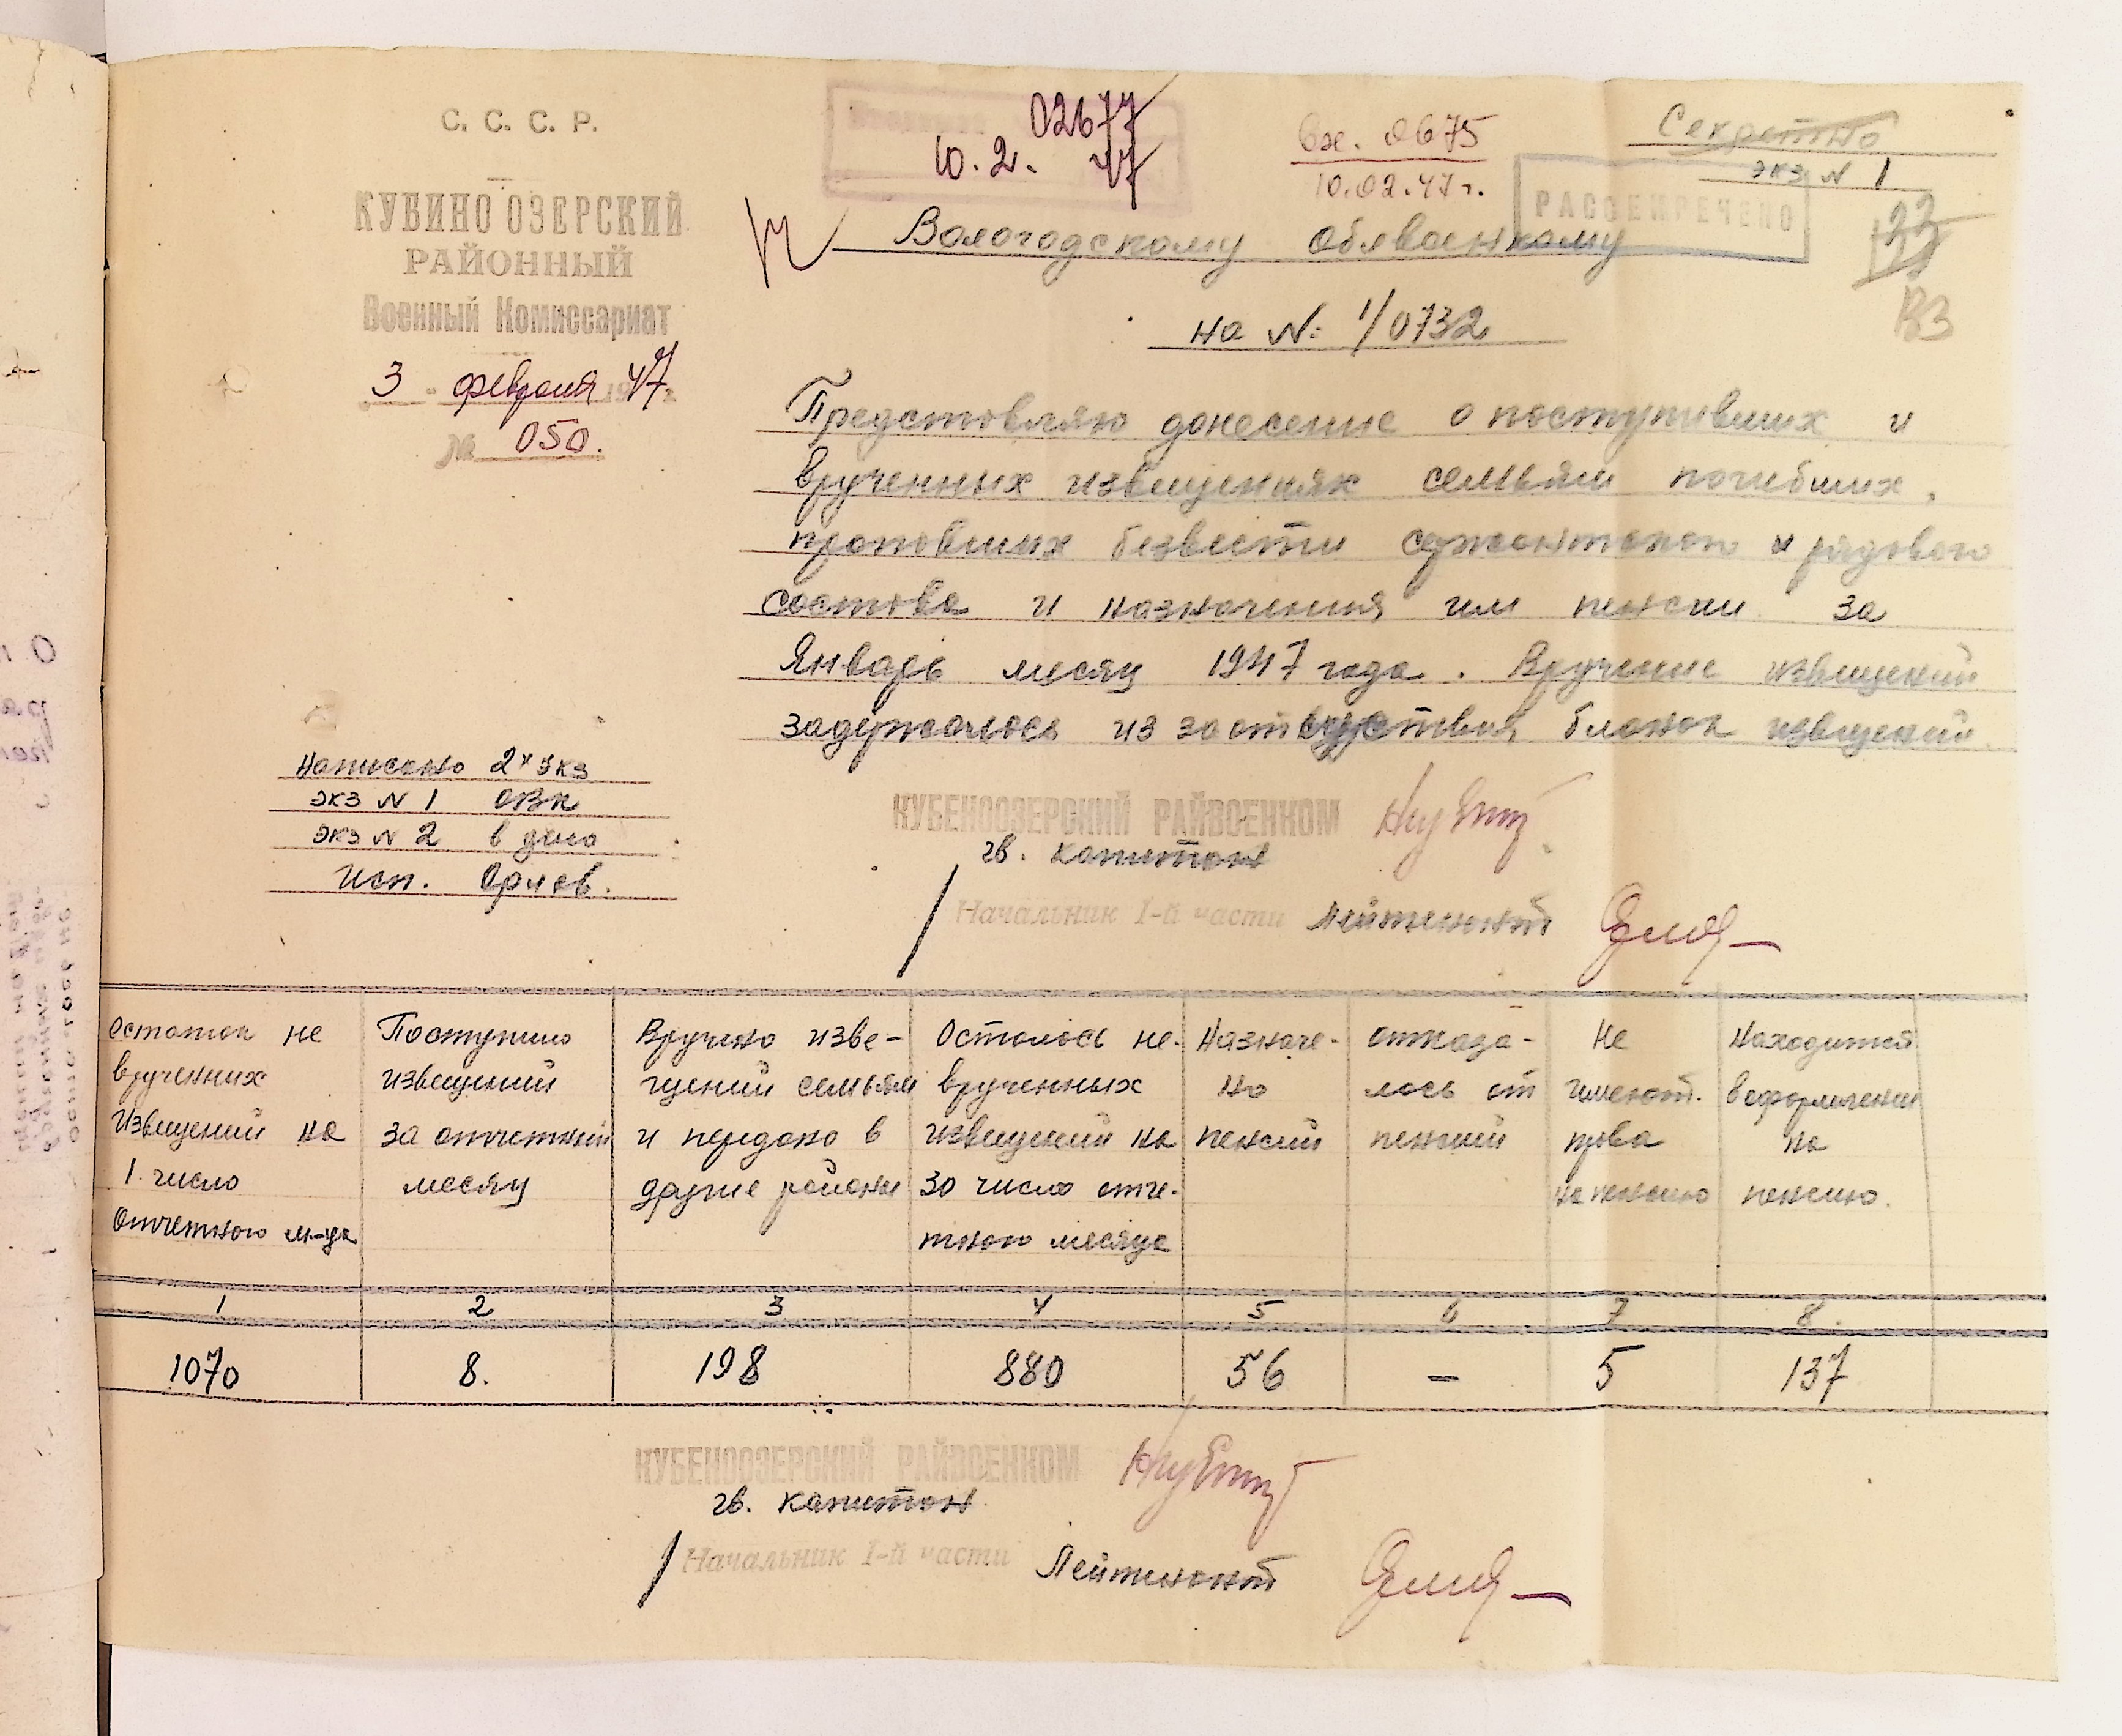 С. С. С. Р.
КУБИНООЗЕРСКИЙ
РАЙОННЫЙ
Военный Комиссариат
3 - февраля 1947 г.
№ 050.
02677
10. 2. 47
Вх. 0675
10.02.47 г.
Секретно
экз N 1
РАССЕКРЕЧЕНО
Вологодскому облвоенкому
на N: 1/0732
Представляю донесение о поступивших и
врученных извещениях семьям погибших,
пропавших безвести сержантского и рядового
состава и назначения им пенсии за
Январь месяц 1947 года. Вручение извещений
задержалось из за отсуствия бланок извещений.
Написано 2х экз
экз N 1 ОВК
экз N 2 в дело
Исп.
КУБЕНООЗЕРСКИЙ РАЙВОЕНКОМ
гв. капитан
/ Начальник 1-й части Лейтенант
Остаток не врученных Извещений на 1. число отчетного м-ца
Поступило извещений за отчетный месяц
Вручено изве-щений семьям и передано в другие районы
Осталось не-врученных извещений на 30 число отче-тного месяца
Назначе-но пенсий
отказа-лось от пенсий
Не имеют. права на пенсию
Находится в оформлении на пенсию.
1 2 3 4 5 6 7 8.
1070 8. 198 880 56 — 5 137
КУБЕНООЗЕРСКИЙ РАЙВОЕНКОМ
гв. капитан
/ Начальник 1-й части Лейтенант